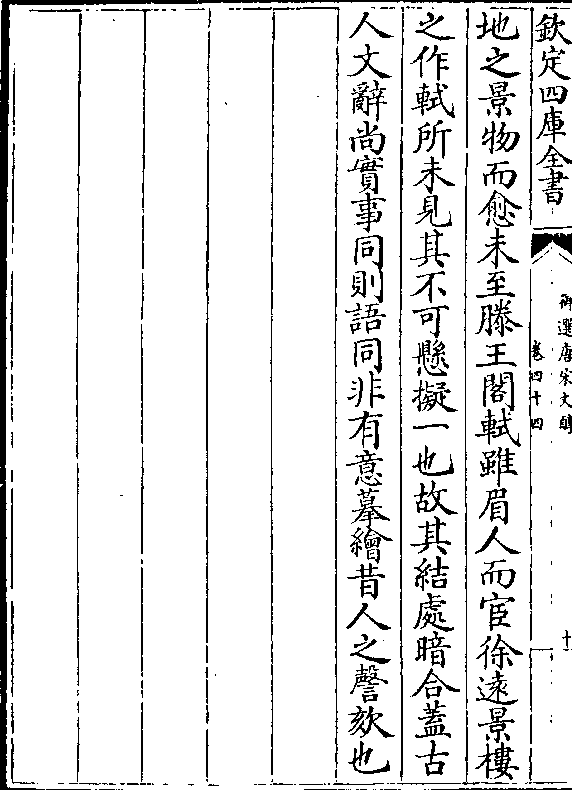 欽定四庫全書
御選唐宋文醇
卷四十四
十
地之景物而愈未至滕王閣軾雖眉人而宦徐遠景樓
之作軾所未見其不可懸擬一也故其結處暗合蓋古
人文辭尚實事同則語同非有意摹繪昔人之謦欬也